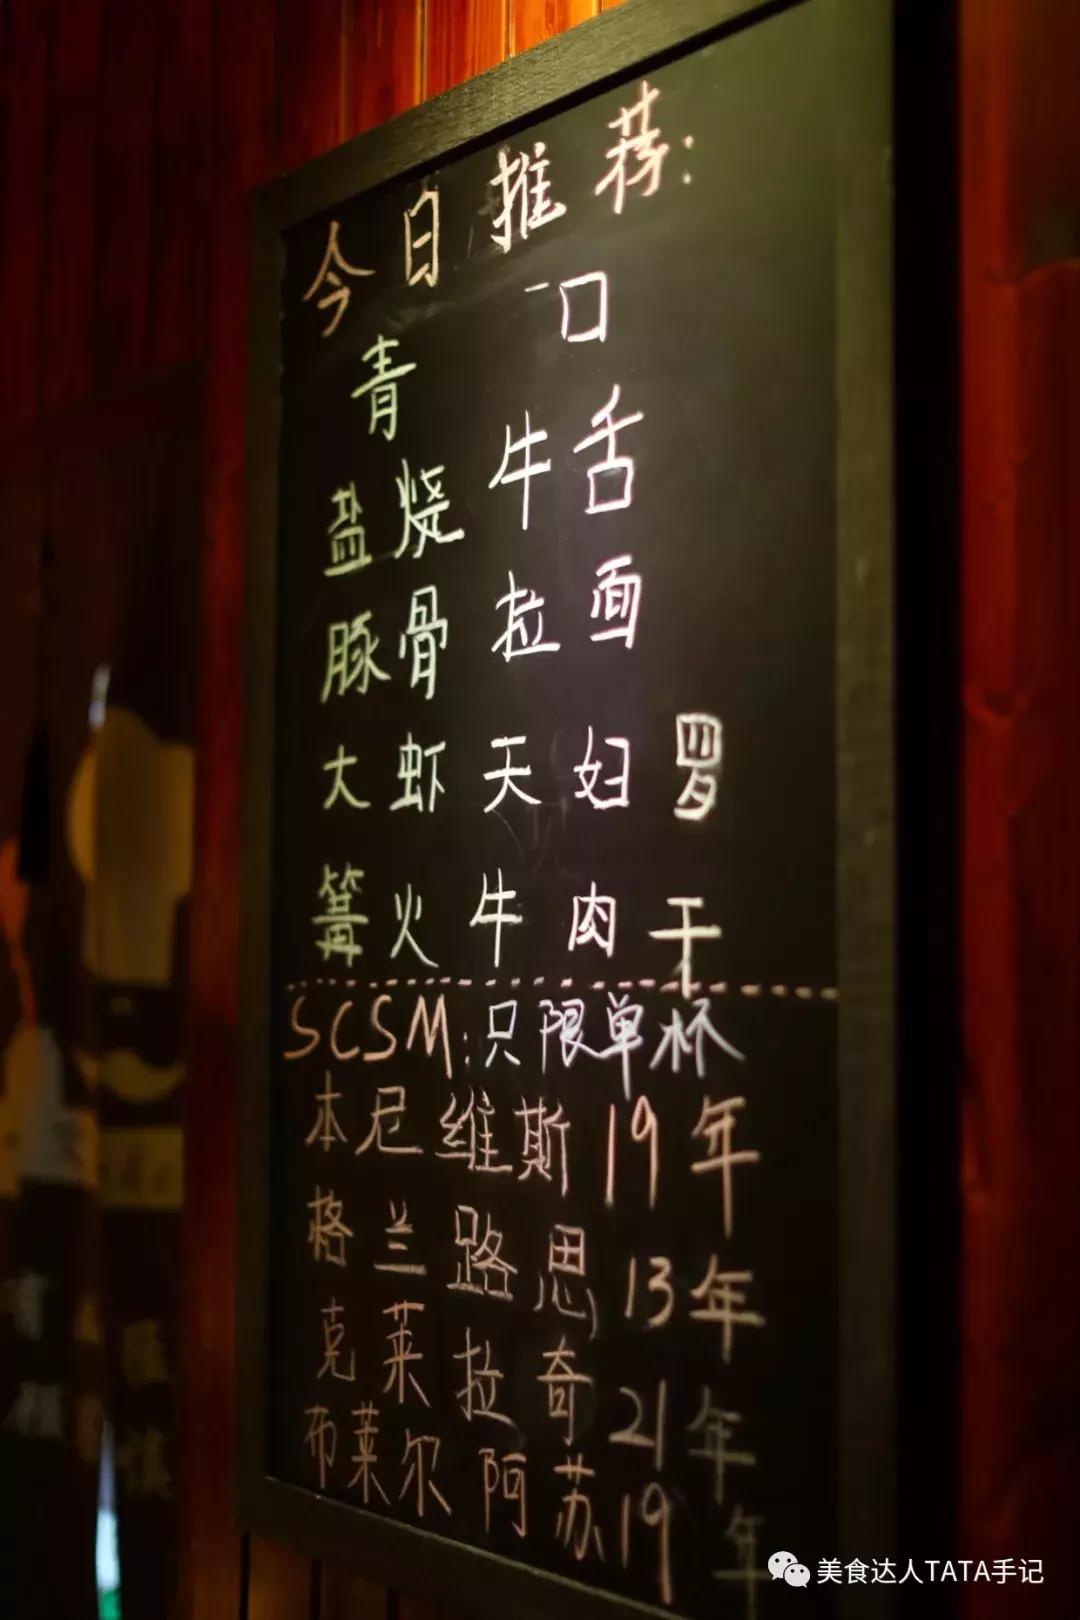 今日推荐:
青 一口
盐烧牛舌
豚骨拉面
大虾天妇罗
篝火牛肉干
SCSM:只限单杯
本尼维斯 19年
格兰路思 13年
克莱拉奇 21年
布莱尔阿苏 19年
美食达人TATA手记